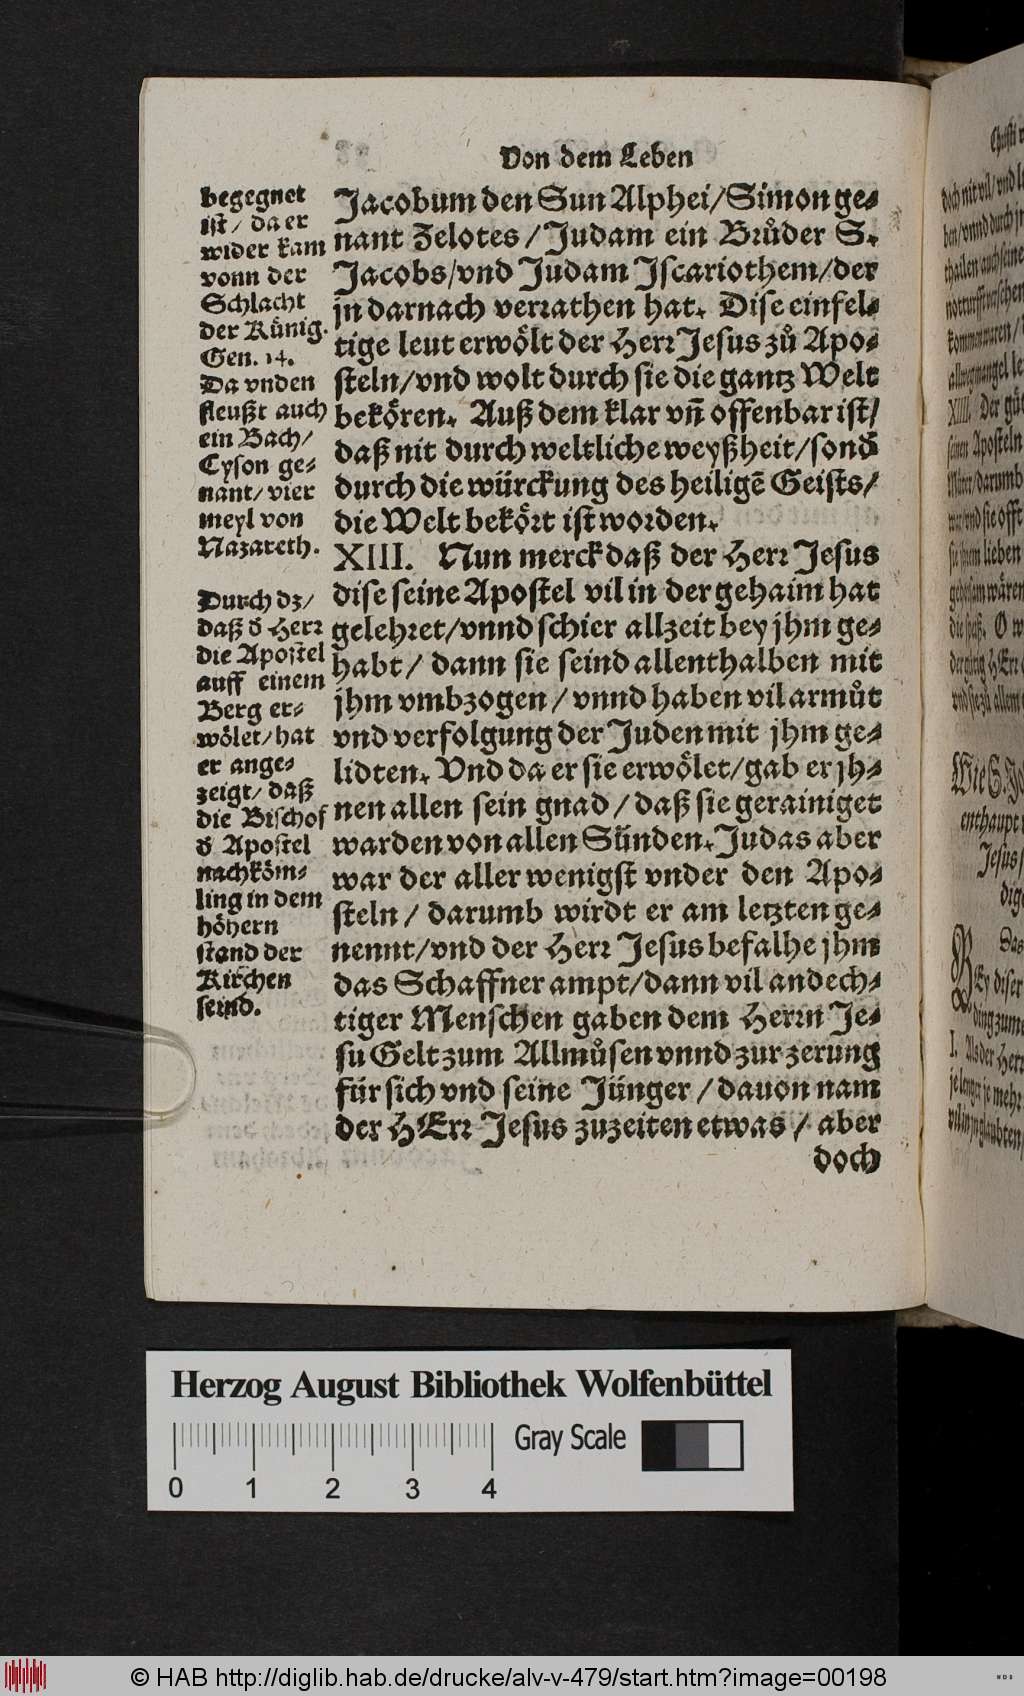 Von dem Leben
begegnet
ist / da er
wider kam
vonn der
Schlacht
der Künig.
Gen. 14.
Da vnden
fleußt auch
ein Bach /
Cyson ge-
nant / vier
meyl von
Nazareth.
Durch dz /
daß d̄ Herr
die Apostel
auff einem
Berg er-
wölet / hat
er ange-
zeigt / daß
die Bischof
d̄ Apostel
nachköm-
ling in dem
höhern
stand der
Kirchen
seind.
Jacobum den Sun Alphei / Simon ge-
nant Zelotes / Judam ein Brůder S.
Jacobs / vnd Judam Jscariothem / der
jn darnach verrathen hat. Dise einfel-
tige leut erwölt der Herr Jesus zů Apo-
steln / vnd wolt durch sie die gantz Welt
bekören. Auß dem klar vn̄ offenbar ist /
daß nit durch weltliche weyßheit / sond̄
durch die würckung des heiligē Geists /
die Welt bekört ist worden.
XIII. Nun merck daß der Herr Jesus
dise seine Apostel vil in der gehaim hat
gelehret / vnnd schier allzeit bey jhm ge-
habt / dann sie seind allenthalben mit
jhm vmbzogen / vnnd haben vil armůt
vnd verfolgung der Juden mit jhm ge-
lidten. Vnd da er sie erwölet / gab er jh-
nen allen sein gnad / daß sie gerainiget
warden von allen Sünden. Judas aber
war der aller wenigst vnder den Apo-
steln / darumb wirdt er am letzten ge-
nennt / vnd der Herr Jesus befalhe jhm
das Schaffner ampt / dann vil andech-
tiger Menschen gaben dem Herrn Je-
su Gelt zum Allmůsen vnnd zur zerung
für sich vnd seine Jünger / dauon nam
der HErr Jesus zuzeiten etwas / aber
doch
Christi
doch nit vil / vnd
ben / vnnd durch
thailen auch seine
kommen
XIII. Der
seinen Aposteln
darumb
vnd sie offt
lieben
gehorsam wären
O
vnd sie zu allem
Wie S.
enthaupt
Jesus
Das
Ey diser
ding zum
I. Als der Herr
je lenger je mehr
vil in jn glaubten
Herzog August Bibliothek Wolfenbüttel
Gray Scale
0 1 2 3 4
© HAB http://diglib.hab.de/drucke/alv-v-479/start.htm?image=00198